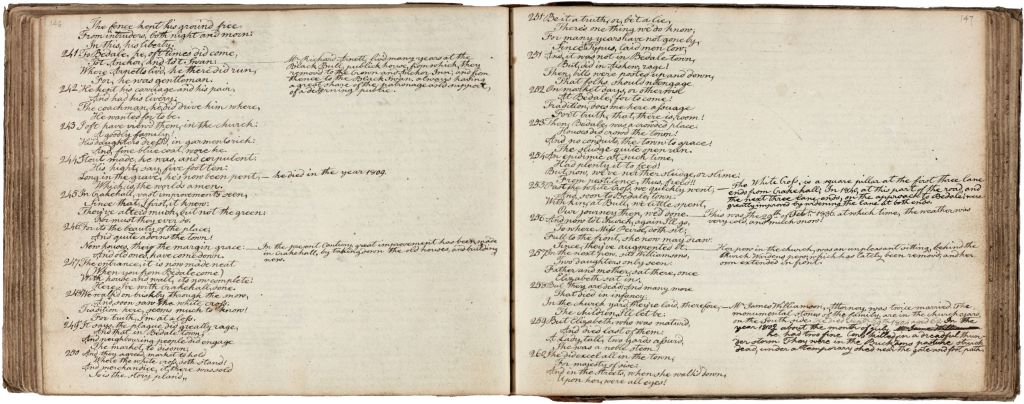 146
The fence kept his ground free
From intruders, both night and morn:
In this, his liberty.
241 To Bedale, he, oft times did come,
To't Anchor, and to't Swan:
Where Arnetts liv'd, he there did run,
For, he was gentleman.
242 He kept his carriage and his pair,
And had his livery:
The coachman, he did drive him where,
He wanted for to be.
243 I oft have view'd them, in the church:
A goodly family!
His daughters dress'd, in garments rich:
And, fine blue coat, wore he.
244 Stout made, he was, and corpulent:
His hight, say, five foot ten:
Long in the grave, he's now been pent,
Which is, the worlds amen.
245 In Crakehall, vast improvements seen,
Since that, I first, it knew:
They've alter'd much, but not the green:
Nor must they ever so.
246 For its the beauty of the place,
And quite adorns the town!
New houses, there, the margin grace:
And old ones, have come down.
247 The entrance, it is now made neat
When you from Bedale come)
With house and wall, its now complete:
Here I've with Crakehall, done.
248 We walk'd on briskly though the snow,
And, soon, saw the white cross:
Tradition here, seems much to know!
For truth, I'm at a loss.
249 It says, the plague did greatly rage,
And that in Bedale town;
And neighbouring people did engage
The market to disown.
250 And they agreed, market to hold
Where the white cross, doth stand!
And merchandice, it there was sold
So is the story pland,,
Mr Richard Arnett, liv'd many years at the
Black Bull, publick house, from which, they
removed to the Crown and Anchor, Inn: and from
thence to the Black Swan, always having
a great share of the patronage and support,
of a deserning public.
he died in the year 1809.
In the present Century, great improvement has been made
in Crakehall, by taking down the old houses, and building
new.
147
251 Be it a truth, or, be't a lie,
There's one thing we do know;
For many years have not gone by,
Since Typus, laid men low,
251 And, it was not in Bedale town,
But, did in Aiskew, rage!
Then, bills were posted up and down,
That folks should engage
252 On market days, or otherwise
At Bedale, for to come!
Tradition, does me here apprise
For't truth, that, there is room!
253 Then, Bedale, was a crowded place:
Houses did crowd the town!
And no conduits, the town to grace!
The sludge quite open ran.
254 An epidimic at such time,
Had plenty of to feed:
But, now, we've nether sludge, or slime:
From pestilence, thus freed!!
255 Past the White Cross we quickly went,
And soon to Bedale town;
With kin, at Bull, we little spent,
Our journey then, we'd done.
256 And now to't Church, again I'll go,
To where Miss Peirse, doth sit:
Full to the front, she now may shaw
Since, they've augmented it.
257 In the next pew, sits Williamsons,
Two daughters, only seen:
Father and mother, sat there, once
Elizabeth sat in.
258 But they are dead: And many more
That died in infancy:
In the church yard they're laid, therefore,
The children, I'll let be:
259 But Elizabeth, who was matur'd,
And died last of them:
A lady tall, two yards assur'd,
She was a noble stem!
260 She did excel all in the town,
For majesty of size:
And in the streets, when she walk'd down,
Upon her, were all eyes!
The White Cross, is a square pillar at the first three lane
ends from Crakehall: In 1840, at this part of the road, and
the next three lane ends, on the approach to Bedale, were
greatly improved by widening the lane at both ends.
This was the 29th of Feb.y 1836, at which time, the weather was
very cold, and much snow!
Her pew in the church, was an unpleasant sitting, behind the
Church Wardens pew, which has lately been removed, and her
own extended in front.
Mr James Williamson, Attorney, was twice married: The
monumental stones of the family, are in the church yard
on the south side
year 1809 about the month of July
two fine
der storm: They were in the Buck Inn pasture
dead, under a temporary shed near the gate and foot path.